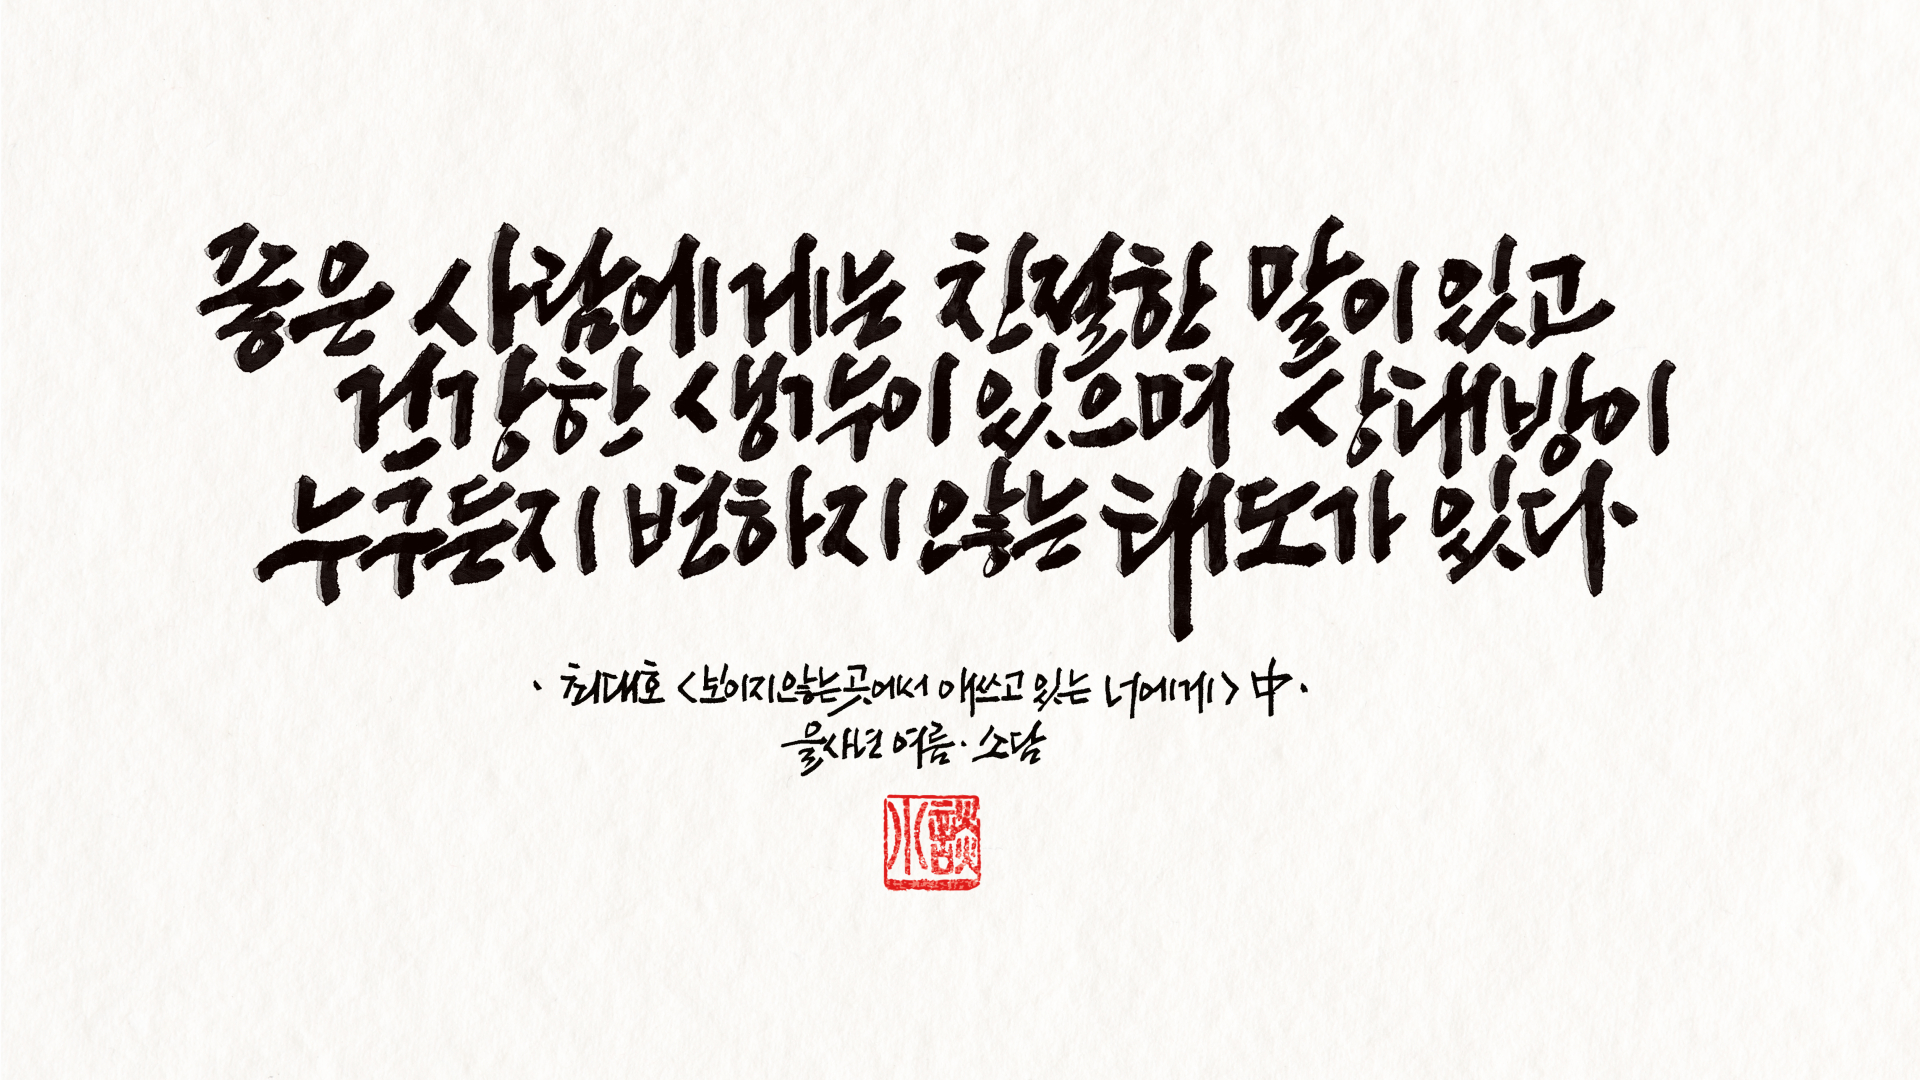 좋은 사람에게는 친절한 말이 있고
건강한 생각이 있으며 상대방이
누구든지 변하지 않는 태도가 있다.
· 최대호 <보이지 않는 곳에서 애쓰고 있는 너에게> 中 ·
을사년 여름 · 소담
小談